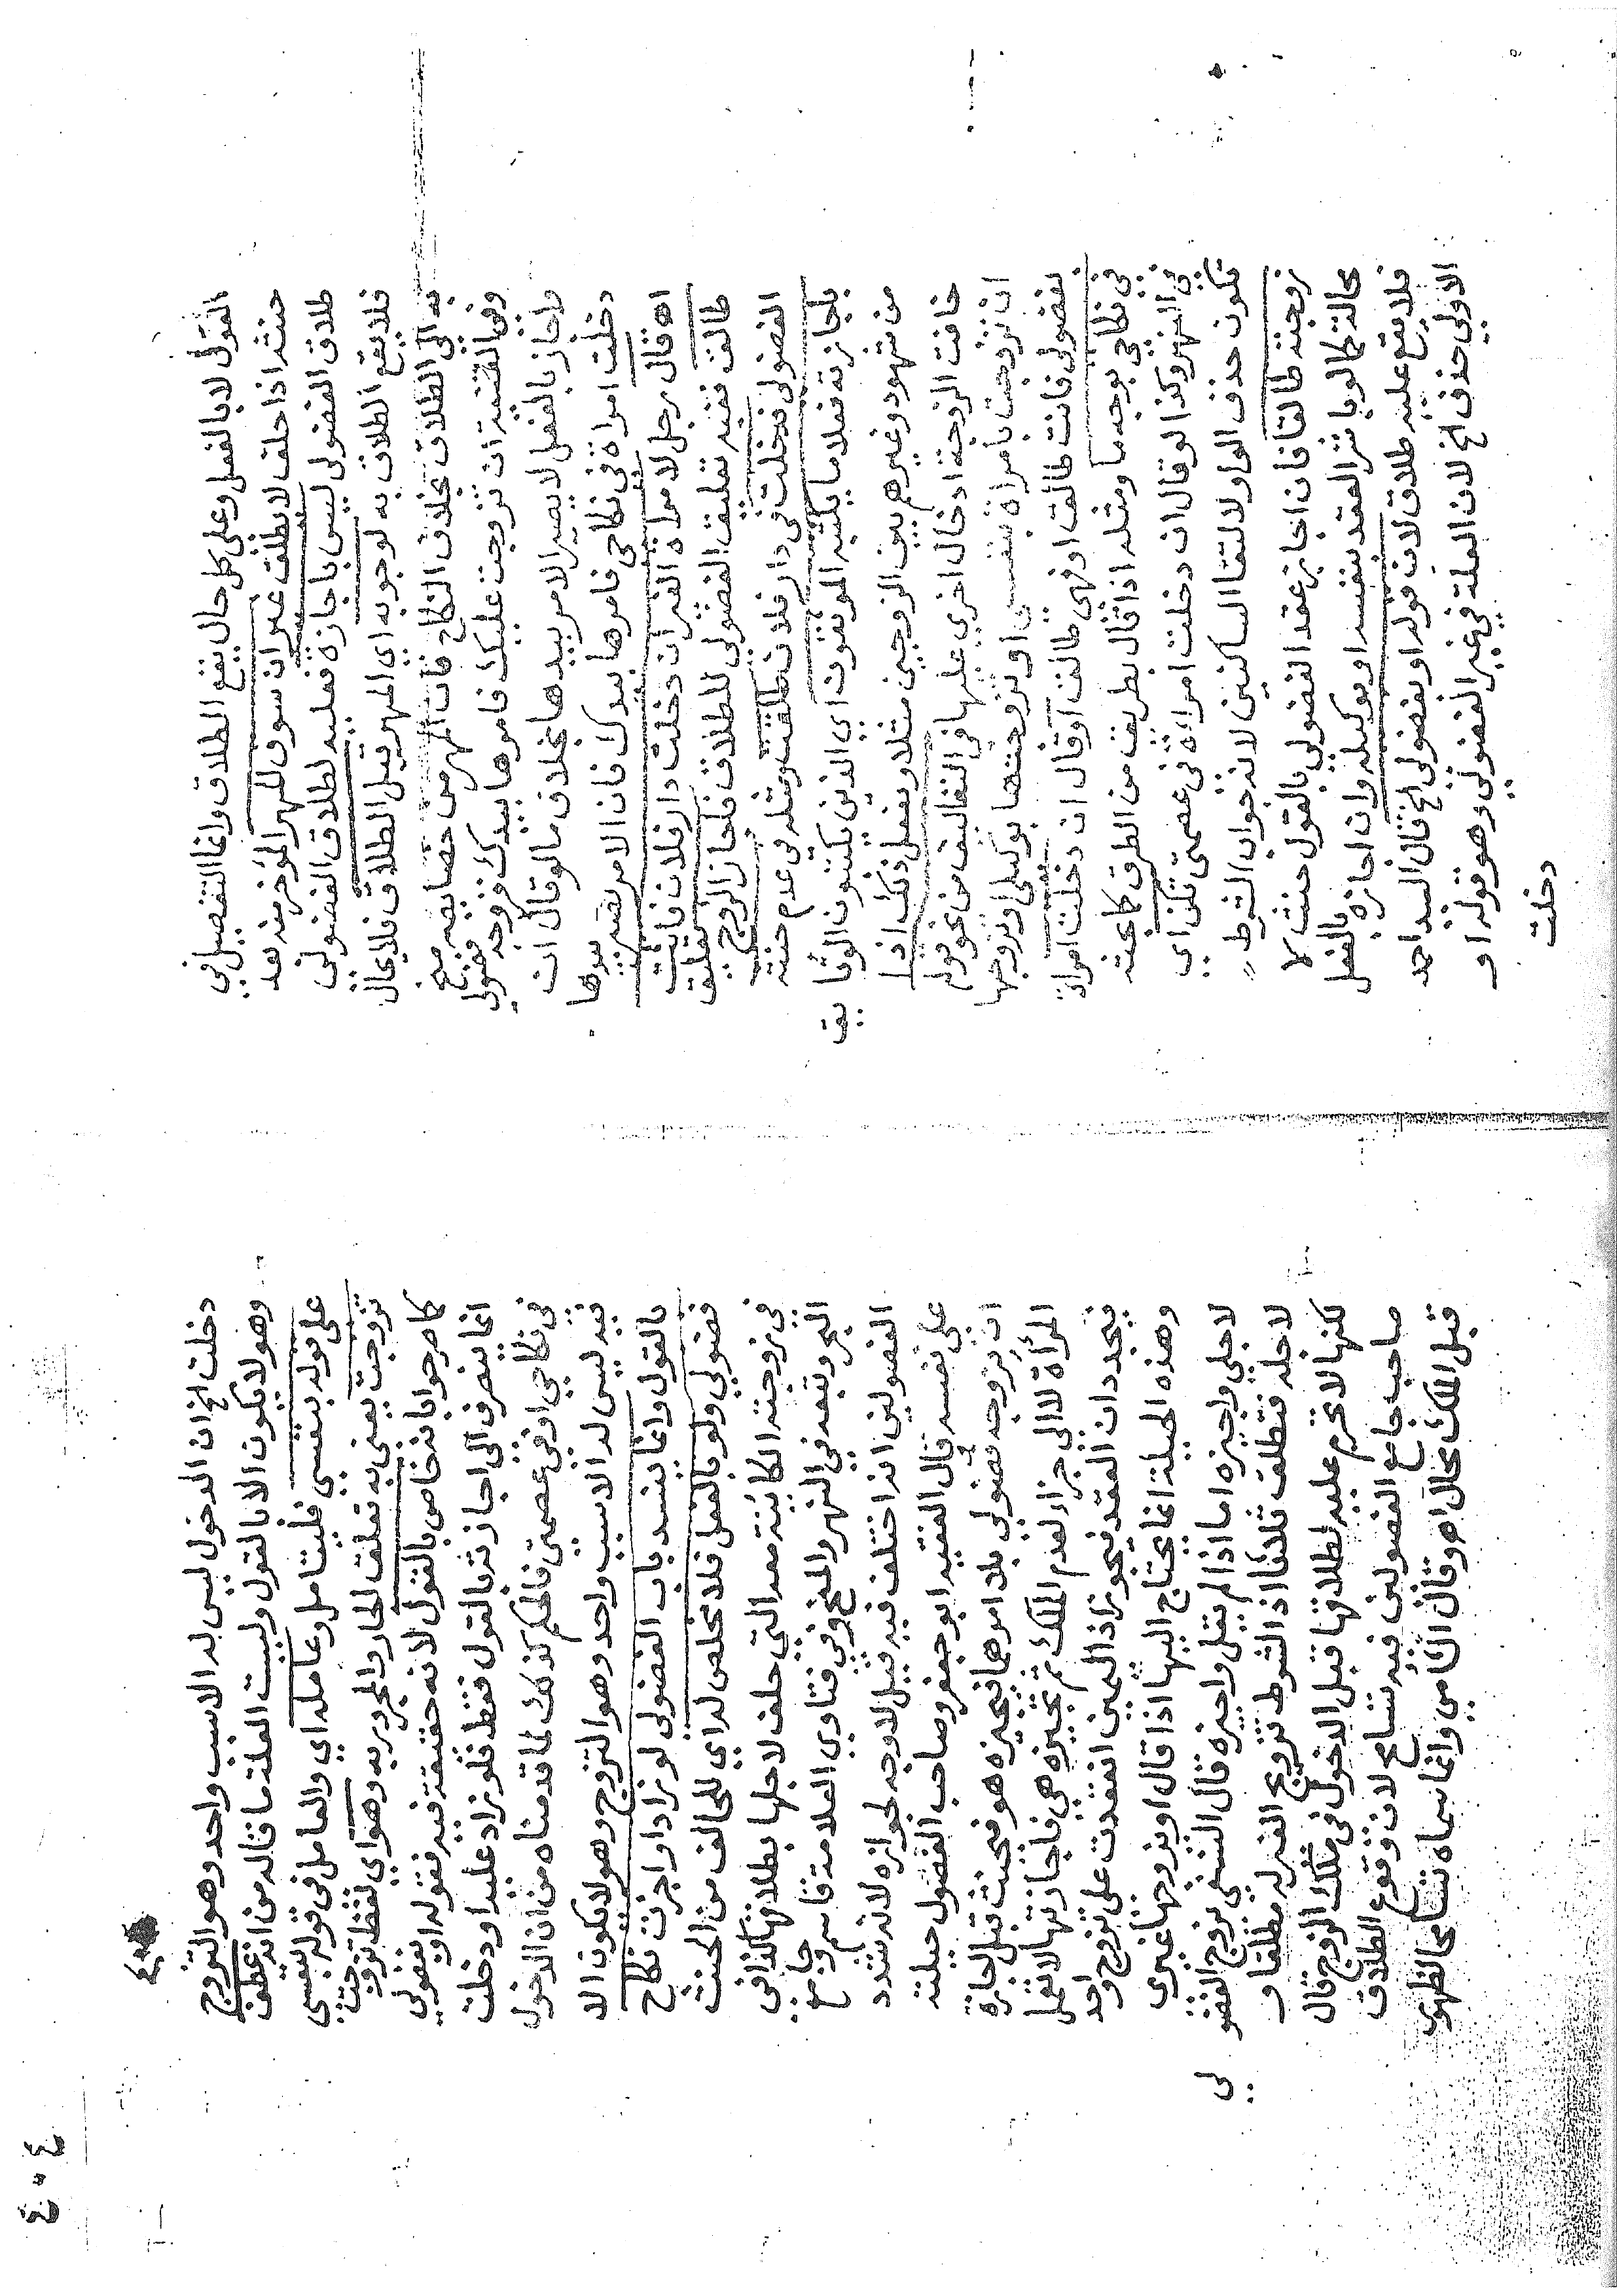 القول لا بالفعل وعلى كل حال يقع الطلاق وانما التفصيل في
حنثه اذا حلف لا يطلق غيران سوق المهر المؤخر منه بعد
طلاق الفضولي ليس باجازة فعلية لطلاق الفضولي
فلا يقع الطلاق به لوجوبه اي المهر قبل الطلاق فلا يحال
به الى الطلاق بخلاف النكاح فان المهر من خصايصه منح
وفي القنية ان تزوجت عليك فامرها بيدك فزوجه فضولي
واجاز بالفعل لا يصير الامر بيدها بخلاف ما لو قال ان
دخلت امراة في نكاحي فامرها بيدك فان الامر يصير بيدها
اه قال رجل لامراة الغير ان دخلت دار فلان فانت
طالق تقييد تعليق الفضولي للطلاق فاجاز الزوج تعليق
الفضولي فدخلت في دار فلان طلقت ومثله في عدم حنثه
باجازته فعلا ما يكتبه الموثقون اي الذين يكتبون الوثايق
من شهود وغيرهم بين الزوجين مثلا ويفعل ذلك اذا
خافت الزوجة ادخال اخرى عليها في التعاليق من نحو قوله
ان تزوجت بامراة بنفسي او تزوجتها بوكيلي او تزوجها
بفضولي فانت طالق او فهي طالق او قال ان دخلت امراة
في نكاحي بوجه ما ومثله اذا قال بطريق من الطرق كما بحثه
في النهر وكذا لو قال ان دخلت امراة في عصمتي تكن اي
تكون حذف الواو لالتقا الساكنين لانه جواب الشرط
زوجته طالقا فان اجاز عقد الفضولي بالقول حنث لا
محالة كما لو باشر العقد بنفسه او بوكيله وان اجازه بالفعل
فلا يقع عليه طلاق لان قوله او بفضولي الخ قال السيد احمد
الاولي حذف الخ لان العلة في غير الفضولي وهو قوله او
دخلت
دخلت الخ ان الدخول ليس له الا سبب واحد وهو التزوج
وهو لا يكون الا بالقول وليت العلة ما قاله من انه عطف
على قوله بنفسي فليتامل وعامله اي والعامل في قوله بنفسي
تزوجت يعني به تعلق الجار والمجرور به وهو اي لفظ تزوجت
كما مر جوابا بانه خاص بالقول لانه حقيقة فيه فقوله او بفضولي
انما ينصرف الى اجازته بالقول فقط فلو زاد عليه او دخلت
في نكاحي او في عصمتي فالحكم كذلك لما قدمناه من ان الدخول
فيه ليس له الا سبب واحد وهو التزوج وهو لا يكون الا
بالقول وانما ينسد باب الفضولي لو زاد او اجزت نكاح
فضولي ولو بالفعل فلا مخلص له اي للحالف من الحنث
في زوجته الكاينة معه التي حلف لاجلها بطلاقها كذا في
البحر وتبعه في النهر والمنح وفي فتاوي العلامة قاسم وجامع
الفصولين انه اختلف فيه فقيل لا وجه لجوازه لانه شدد
على نفسه قال الفقيه ابو جعفر وصاحب الفصول حيلته
ان تزوجه فضولي بلا امرهما فيجيزه هو فيحنث قبل اجازة
المراة لا الى جزا لعدم الملك ثم تجيزه هي فاجازتها لا تعمل
فيجددان العقد فيجوز اذ اليمين انعقدت على تزوج واحد
وهذه الحيلة انما يحتاج اليها اذا قال او يزوجها غيري
لاجلي واجيزه اما اذا لم يقل واجيزه قال النسفي يزوج الفضولي
لاجله فتطلق ثلاثا اذ الشرط تزويج الغير له مطلقا و
لكنها لا تحرم عليه لطلاقها قبل الدخول في ملك الزوج قال
صاحب جامع الفصولين فيه تسامح لان وقوع الطلاق
قبل الملك محال اه وقال الشامي وانما سماه تسامحا لظهور
٤٠٤